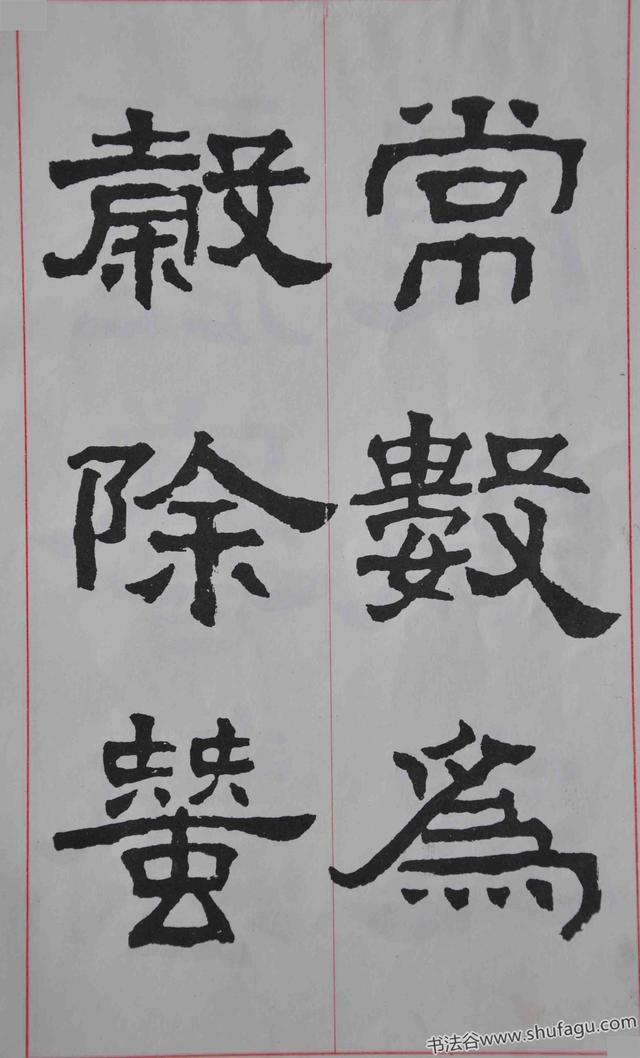 常數爲
穀除蠶
书法谷www.shufagu.com